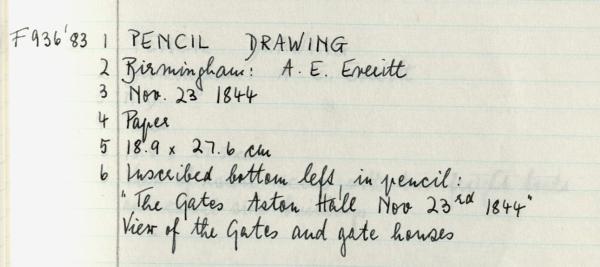 F936'83 1 PENCIL DRAWING
2 Birmingham: A. E. Everitt
3 Nov. 23 1844
4 Paper
5 18.9 x 27.6 cm
6 Inscribed bottom left, in pencil:
"The Gates Aston Hall Nov 23rd 1844"
View of the Gates and gate houses